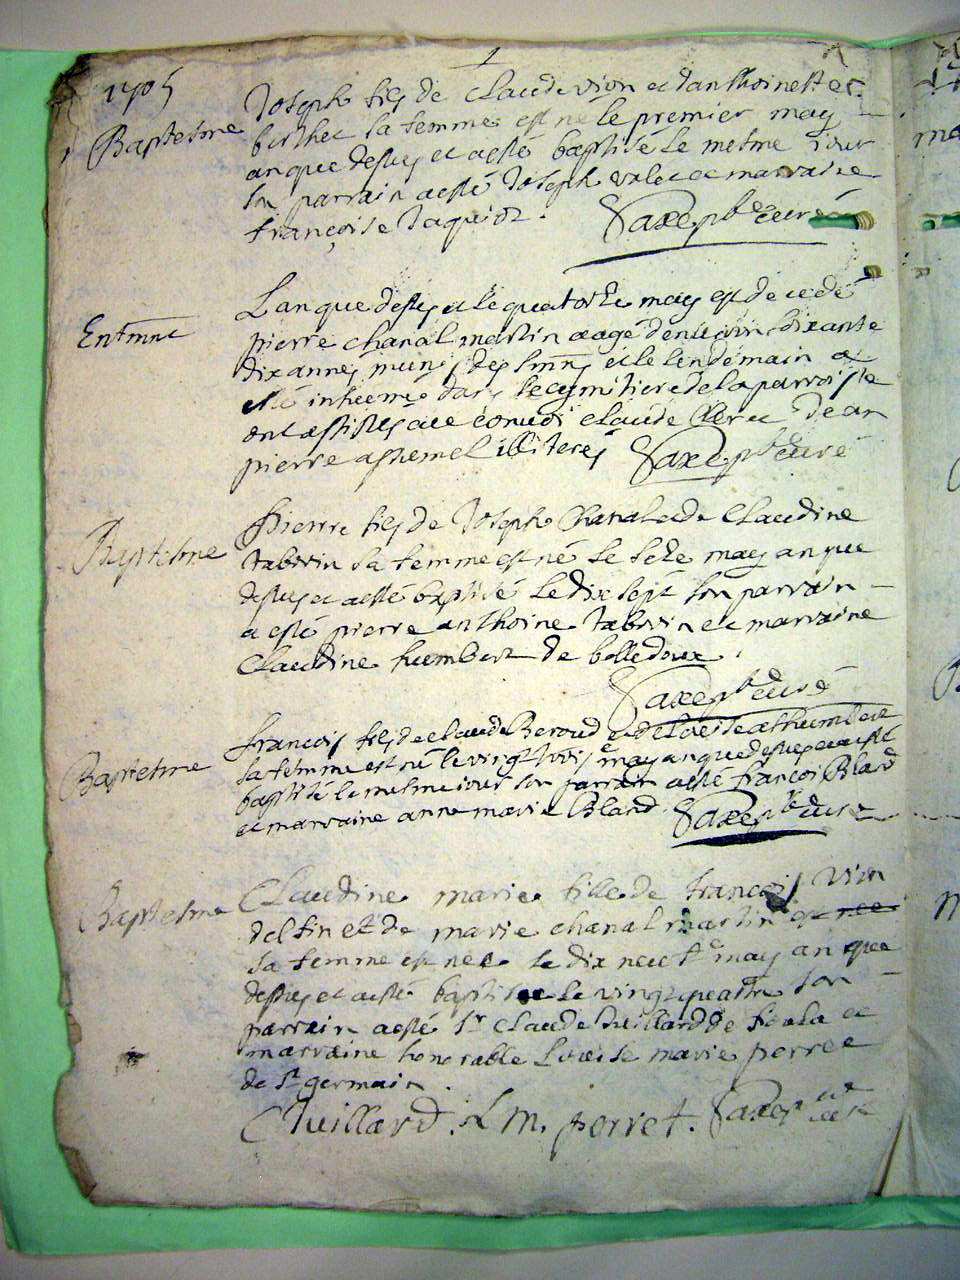 1
1705
Baptesme
Joseph fils de Claude vion et danthoinette
berthet sa femme est ne le premier may
an que dessus et a esté baptisé le mesme jour
son parrain a esté Joseph et marraine
françoise Jaquier.
Saxe pbr curé
Entmnt
Lan que dessus et le quatorze may est decedé
pierre chanal martin aagé denviron soixante
dix annes munis des smns et le lendemain a
esté inhumé dans le cymitiere de la parroisse
ont assistes au convoi Claude et Jean
pierre illiteres Saxe pbr curé
Baptesme
Pierre fils de Joseph Chanal et de Claudine
taborin sa femme est né le seze may an que
dessus et a esté baptisé le dix sept son parrain
a esté pierre anthoine taborin et marraine
Claudine humbert de bolledoux.
Saxe pbr curé
Baptesme
francois fils de Claude Beroud et de Loise humbert
sa femme est né le vingt trois may an que dessus et a esté
baptisé le mesme jour son parrain a esté francois Bland
et marraine anne marie Bland. Saxe pbr curé
Baptesme
Claudine marie fille de francois vion
delfin et de marie chanal martin
sa femme est nee le dix neuf may an que
dessus et a esté baptisee le vingt quatre son
parrain a esté Sr Claude Vuillard de et
marraine honorable Loise marie perret
de St germain.
CVuillard. L M. perret. Saxe pbr curé